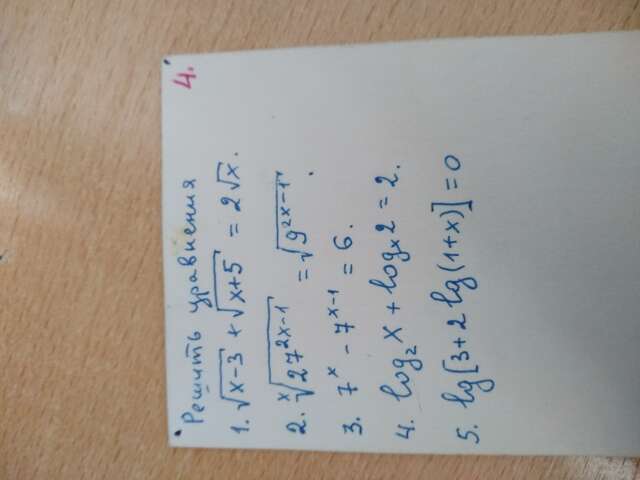 Решить уравнения 4.
1. √(x-3) + √(x+5) = 2√x.
2. ˣ√(27²ˣ⁻¹) = √(9²ˣ⁻¹).
3. 7ˣ - 7ˣ⁻¹ = 6.
4. log₂x + logₓ2 = 2.
5. lg[3+2 lg(1+x)] = 0